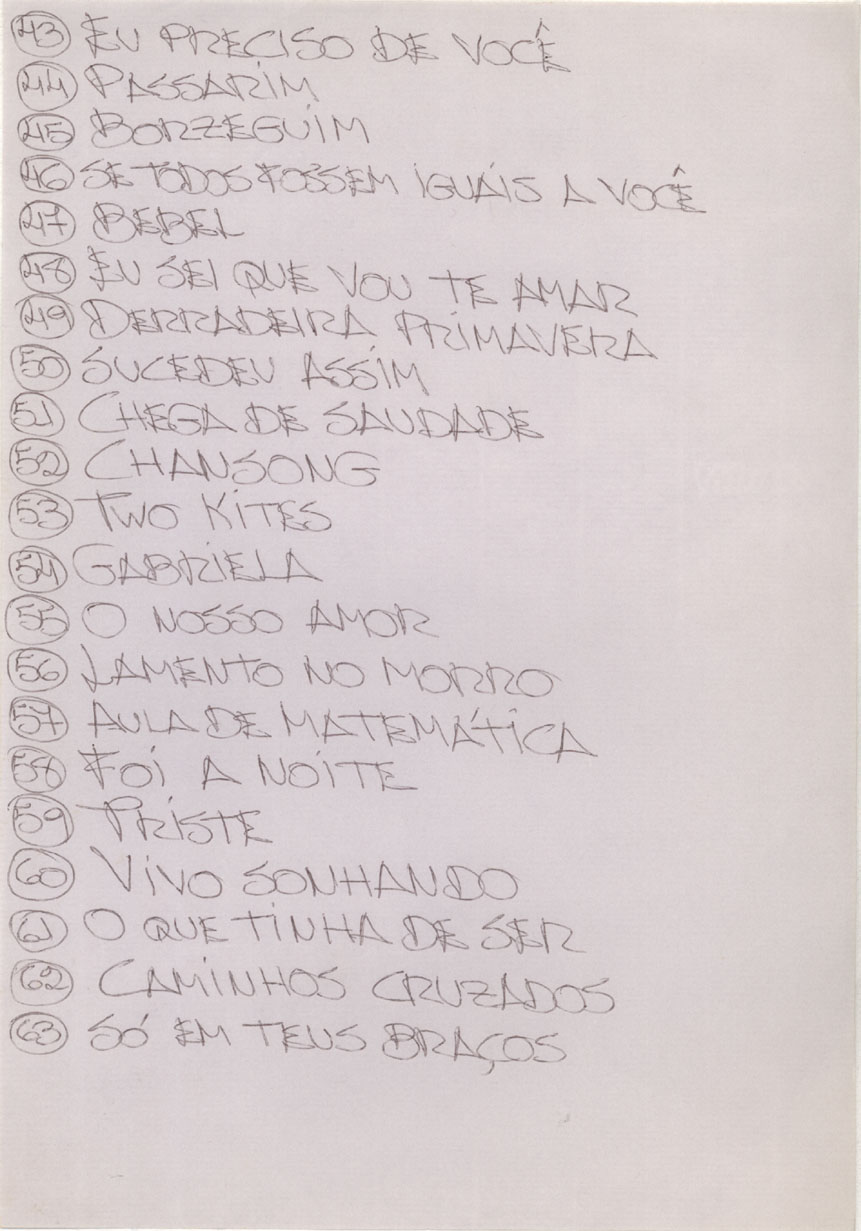 43 EU PRECISO DE VOCÊ
44 PASSARIM
45 BORZEGUIM
46 SE TODOS FOSSEM IGUAIS A VOCÊ
47 BEBEL
48 EU SEI QUE VOU TE AMAR
49 DERRADEIRA PRIMAVERA
50 SUCEDEU ASSIM
51 CHEGA DE SAUDADE
52 CHANSONG
53 TWO KITES
54 GABRIELA
55 O NOSSO AMOR
56 LAMENTO NO MORRO
57 AULA DE MATEMÁTICA
58 FOI A NOITE
59 TRISTE
60 VIVO SONHANDO
61 O QUE TINHA DE SER
62 CAMINHOS CRUZADOS
63 SÓ EM TEUS BRAÇOS